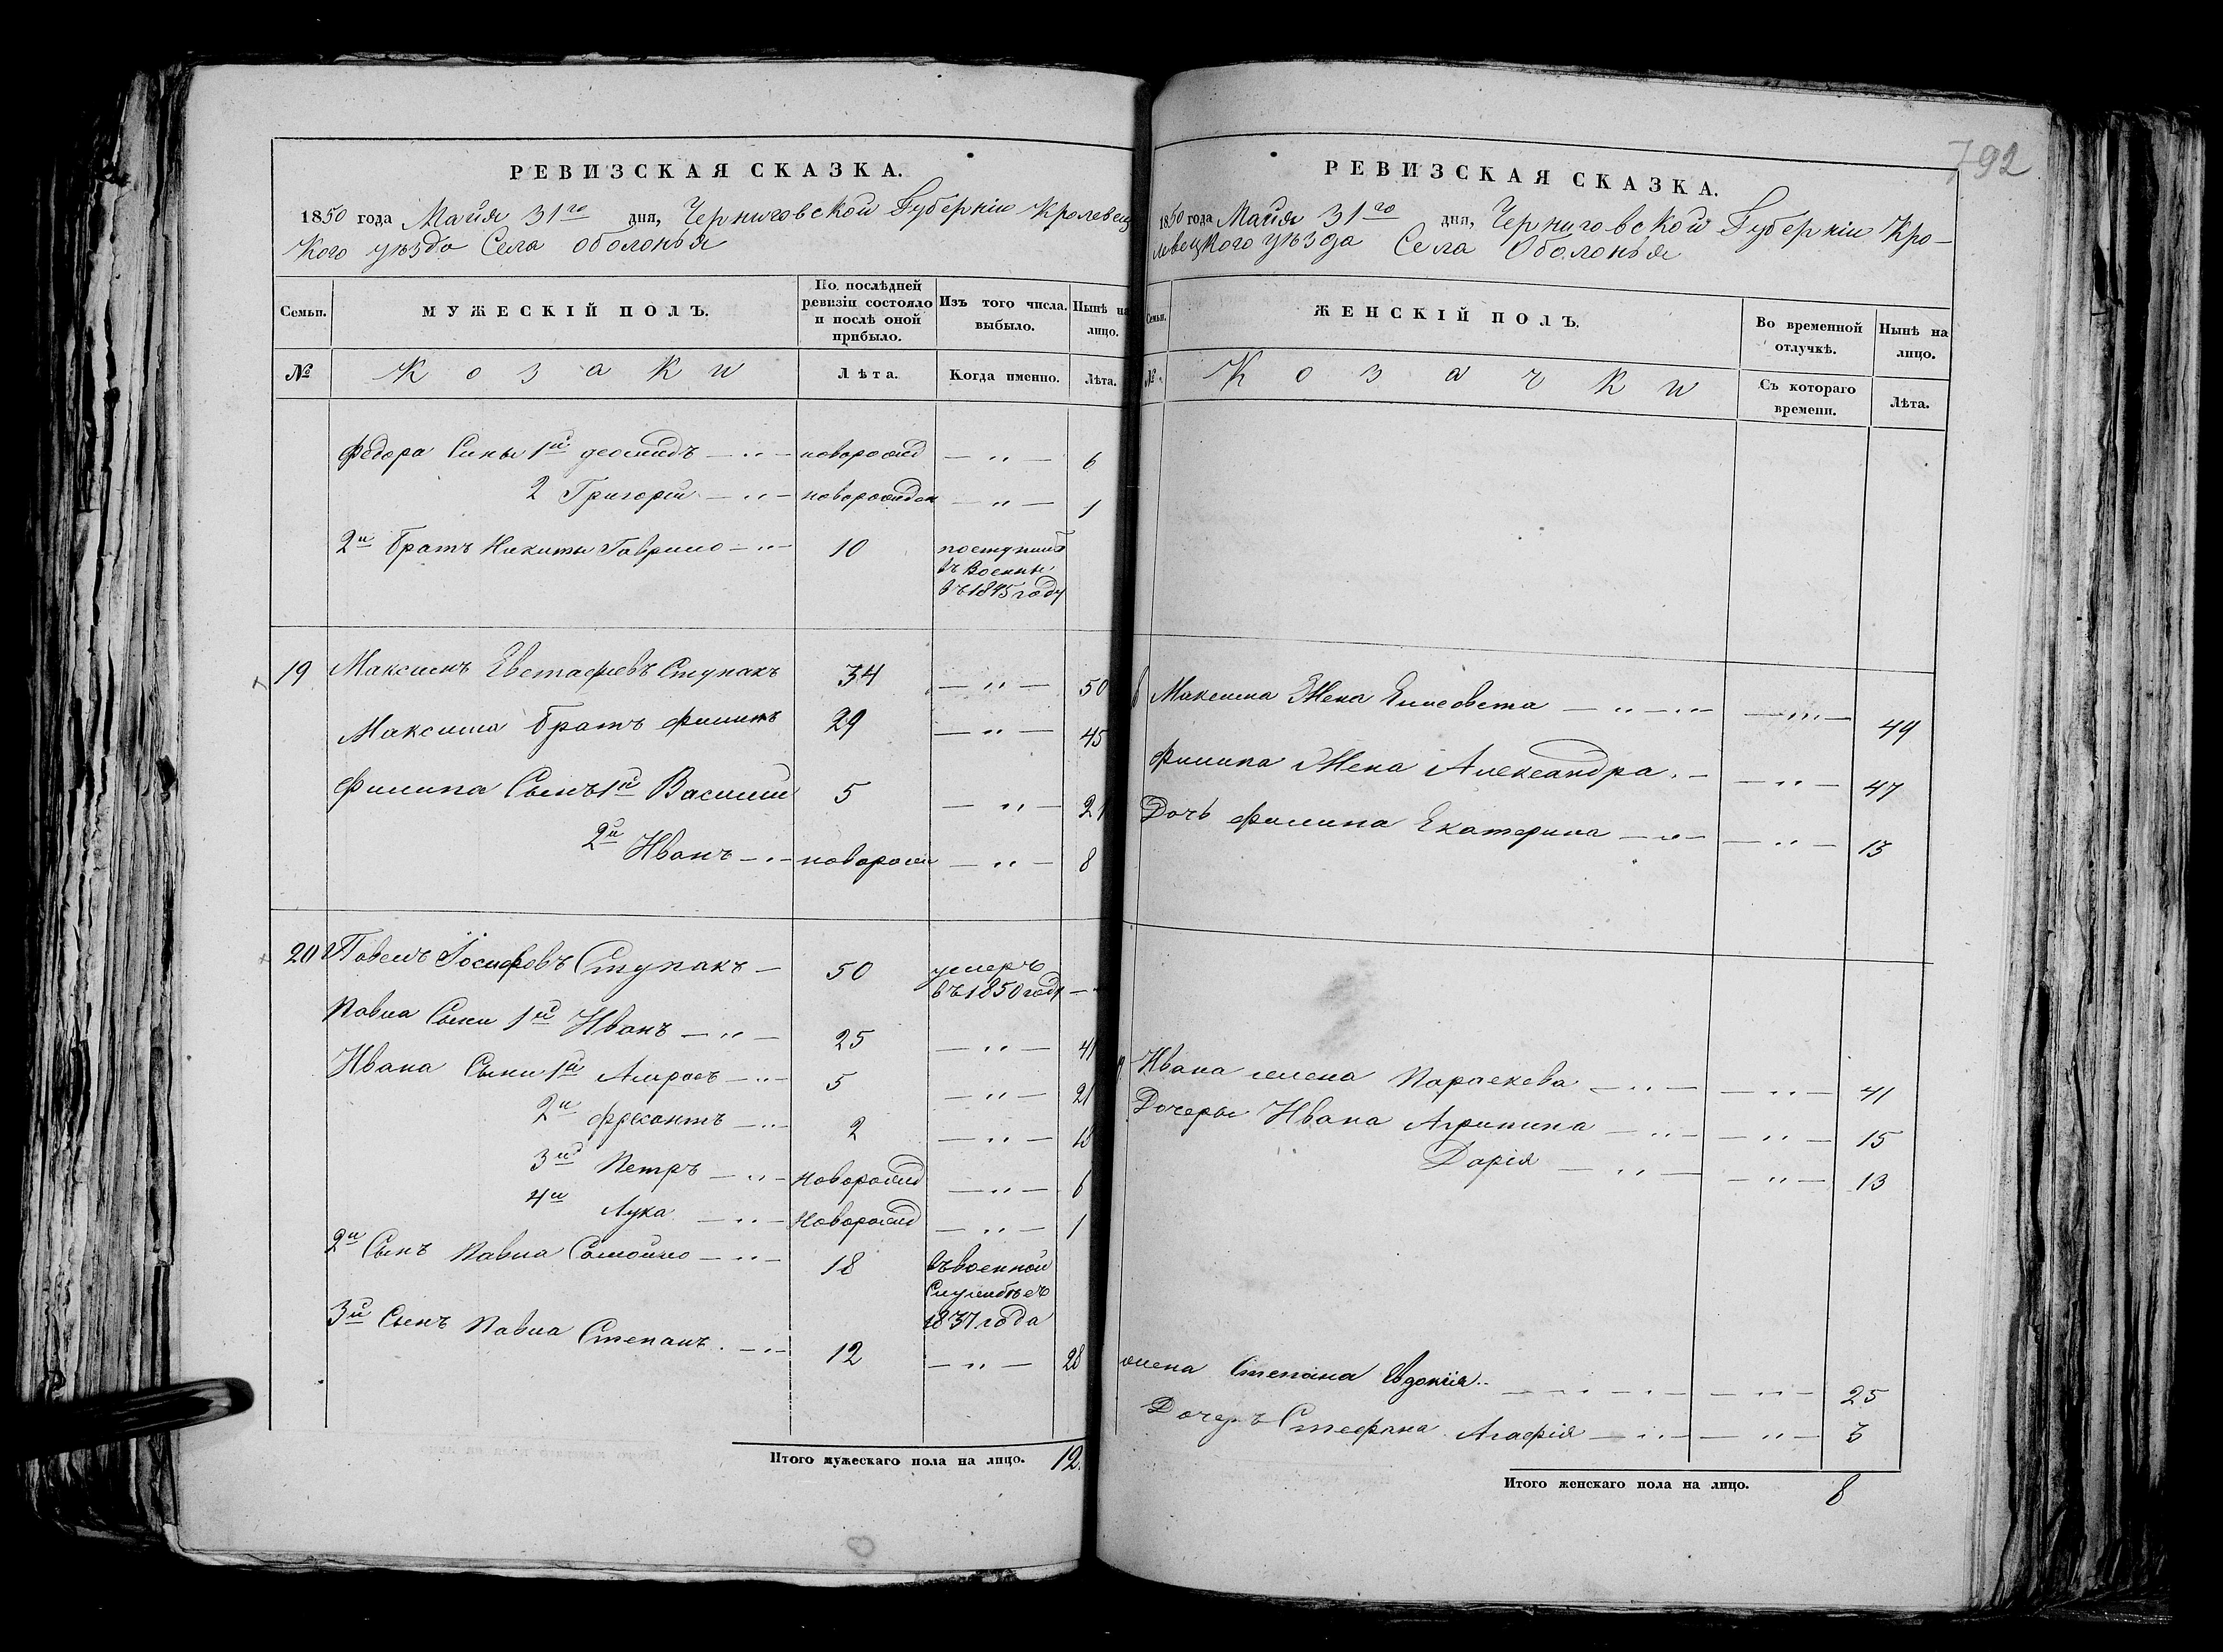 РЕВИЗСКАЯ СКАЗКА.
1850 года Майя 31го дня, Черниговской Губерніи Кролевец
кого уѣзда Села Оболонья
Семьи.
МУЖЕСКІЙ ПОЛЪ.
По послѣдней ревизіи состояло и послѣ оной прибыло.
Изъ того числа выбыло.
Нынѣ на лицо.
№
Козаки
Лѣта.
Когда именно.
Лѣта.
Федора Сины 1й — " — новорожд — " — 6
2 Григорий — " — новорожден — " — 1
2й братъ Никиты Гаврило — " — 10 поступилъ
въ Военны
въ 1845 году
19 Максимъ Евстафіевъ Ступакъ 34 — " — 50
Максима братъ Филипъ 29 — " — 45
Филипа Сынъ 1й Василий 5 — " — 21
2й Иванъ — " — новорож — " — 8
20 Павелъ Іосифовъ Ступакъ — 50 умеръ
въ 1850 году — "
Павла Сыни 1й Иванъ — " — 25 — " — 41
Ивана Сыни 1й — " — 5 — " — 21
2й — " — 2 — " — 18
3й Петръ — " — Новорожд — " — 6
4й Лука — " — Новорожд — " — 1
2й Сынъ Павла Самойло — " — 18 въ военной
Службѣ съ
1837 года
3й Сынъ Павла Степанъ. — " — 12 — " — 28
Итого мужескаго пола на лицо. 12.
792
РЕВИЗСКАЯ СКАЗКА.
1850 года Майя 31го дня, Черниговской Губерніи Кро-
левецкого уѣзда Села Оболонья
Семьи.
ЖЕНСКІЙ ПОЛЪ.
Во временной отлучкѣ.
Нынѣ на лицо.
№
Козачки
Съ котораго времени.
Лѣта.
Максима Жена Елисавета — " — " — — " — 49
Филипа Жена Александра. — — " — 47
Дочь Филипа Екатерина — " — — " — 13
Ивана жена Параскева — " — — " — 41
Дочеры Ивана Агрипина — " — — " — 15
Дарія — " — — " — 13
жена Степана Евдокія — " — — " — 25
Дочеръ Стефана Агафія — " — — " — 3
Итого женскаго пола на лицо. 8